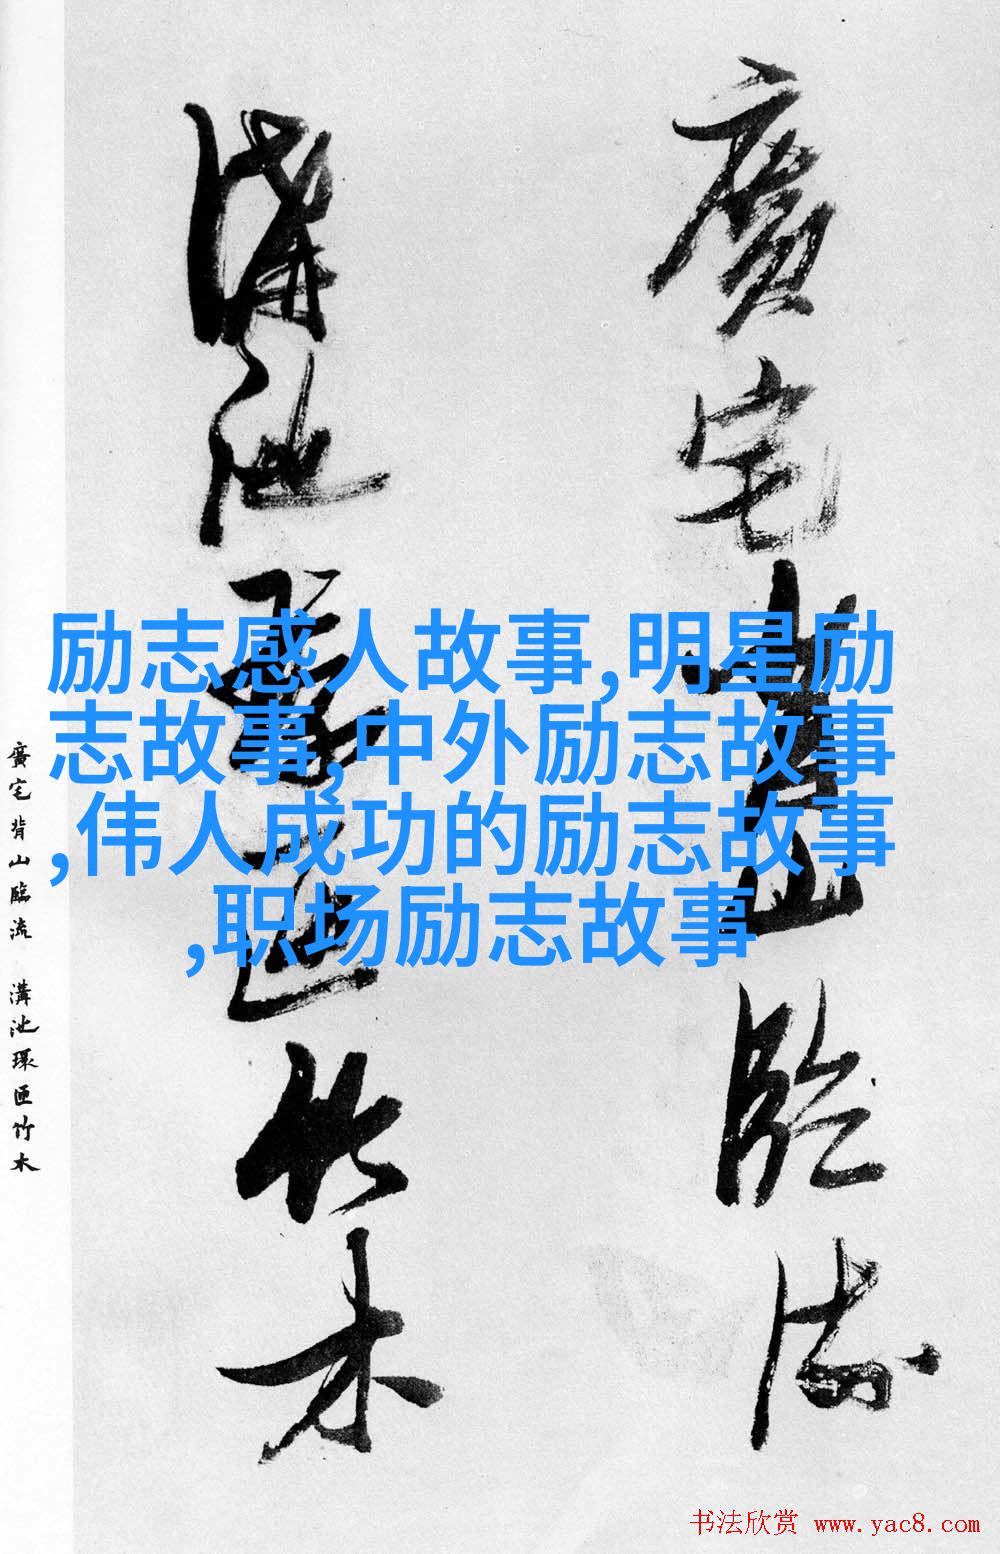 廣宅背山臨流
溝池環匝竹木
励志感人故事,明星励
志故事,中外励志故事
,伟人成功的励志故事
,职场励志故事
廣宅背山臨流 溝池環匝竹木
书法欣赏 www.yac8.com